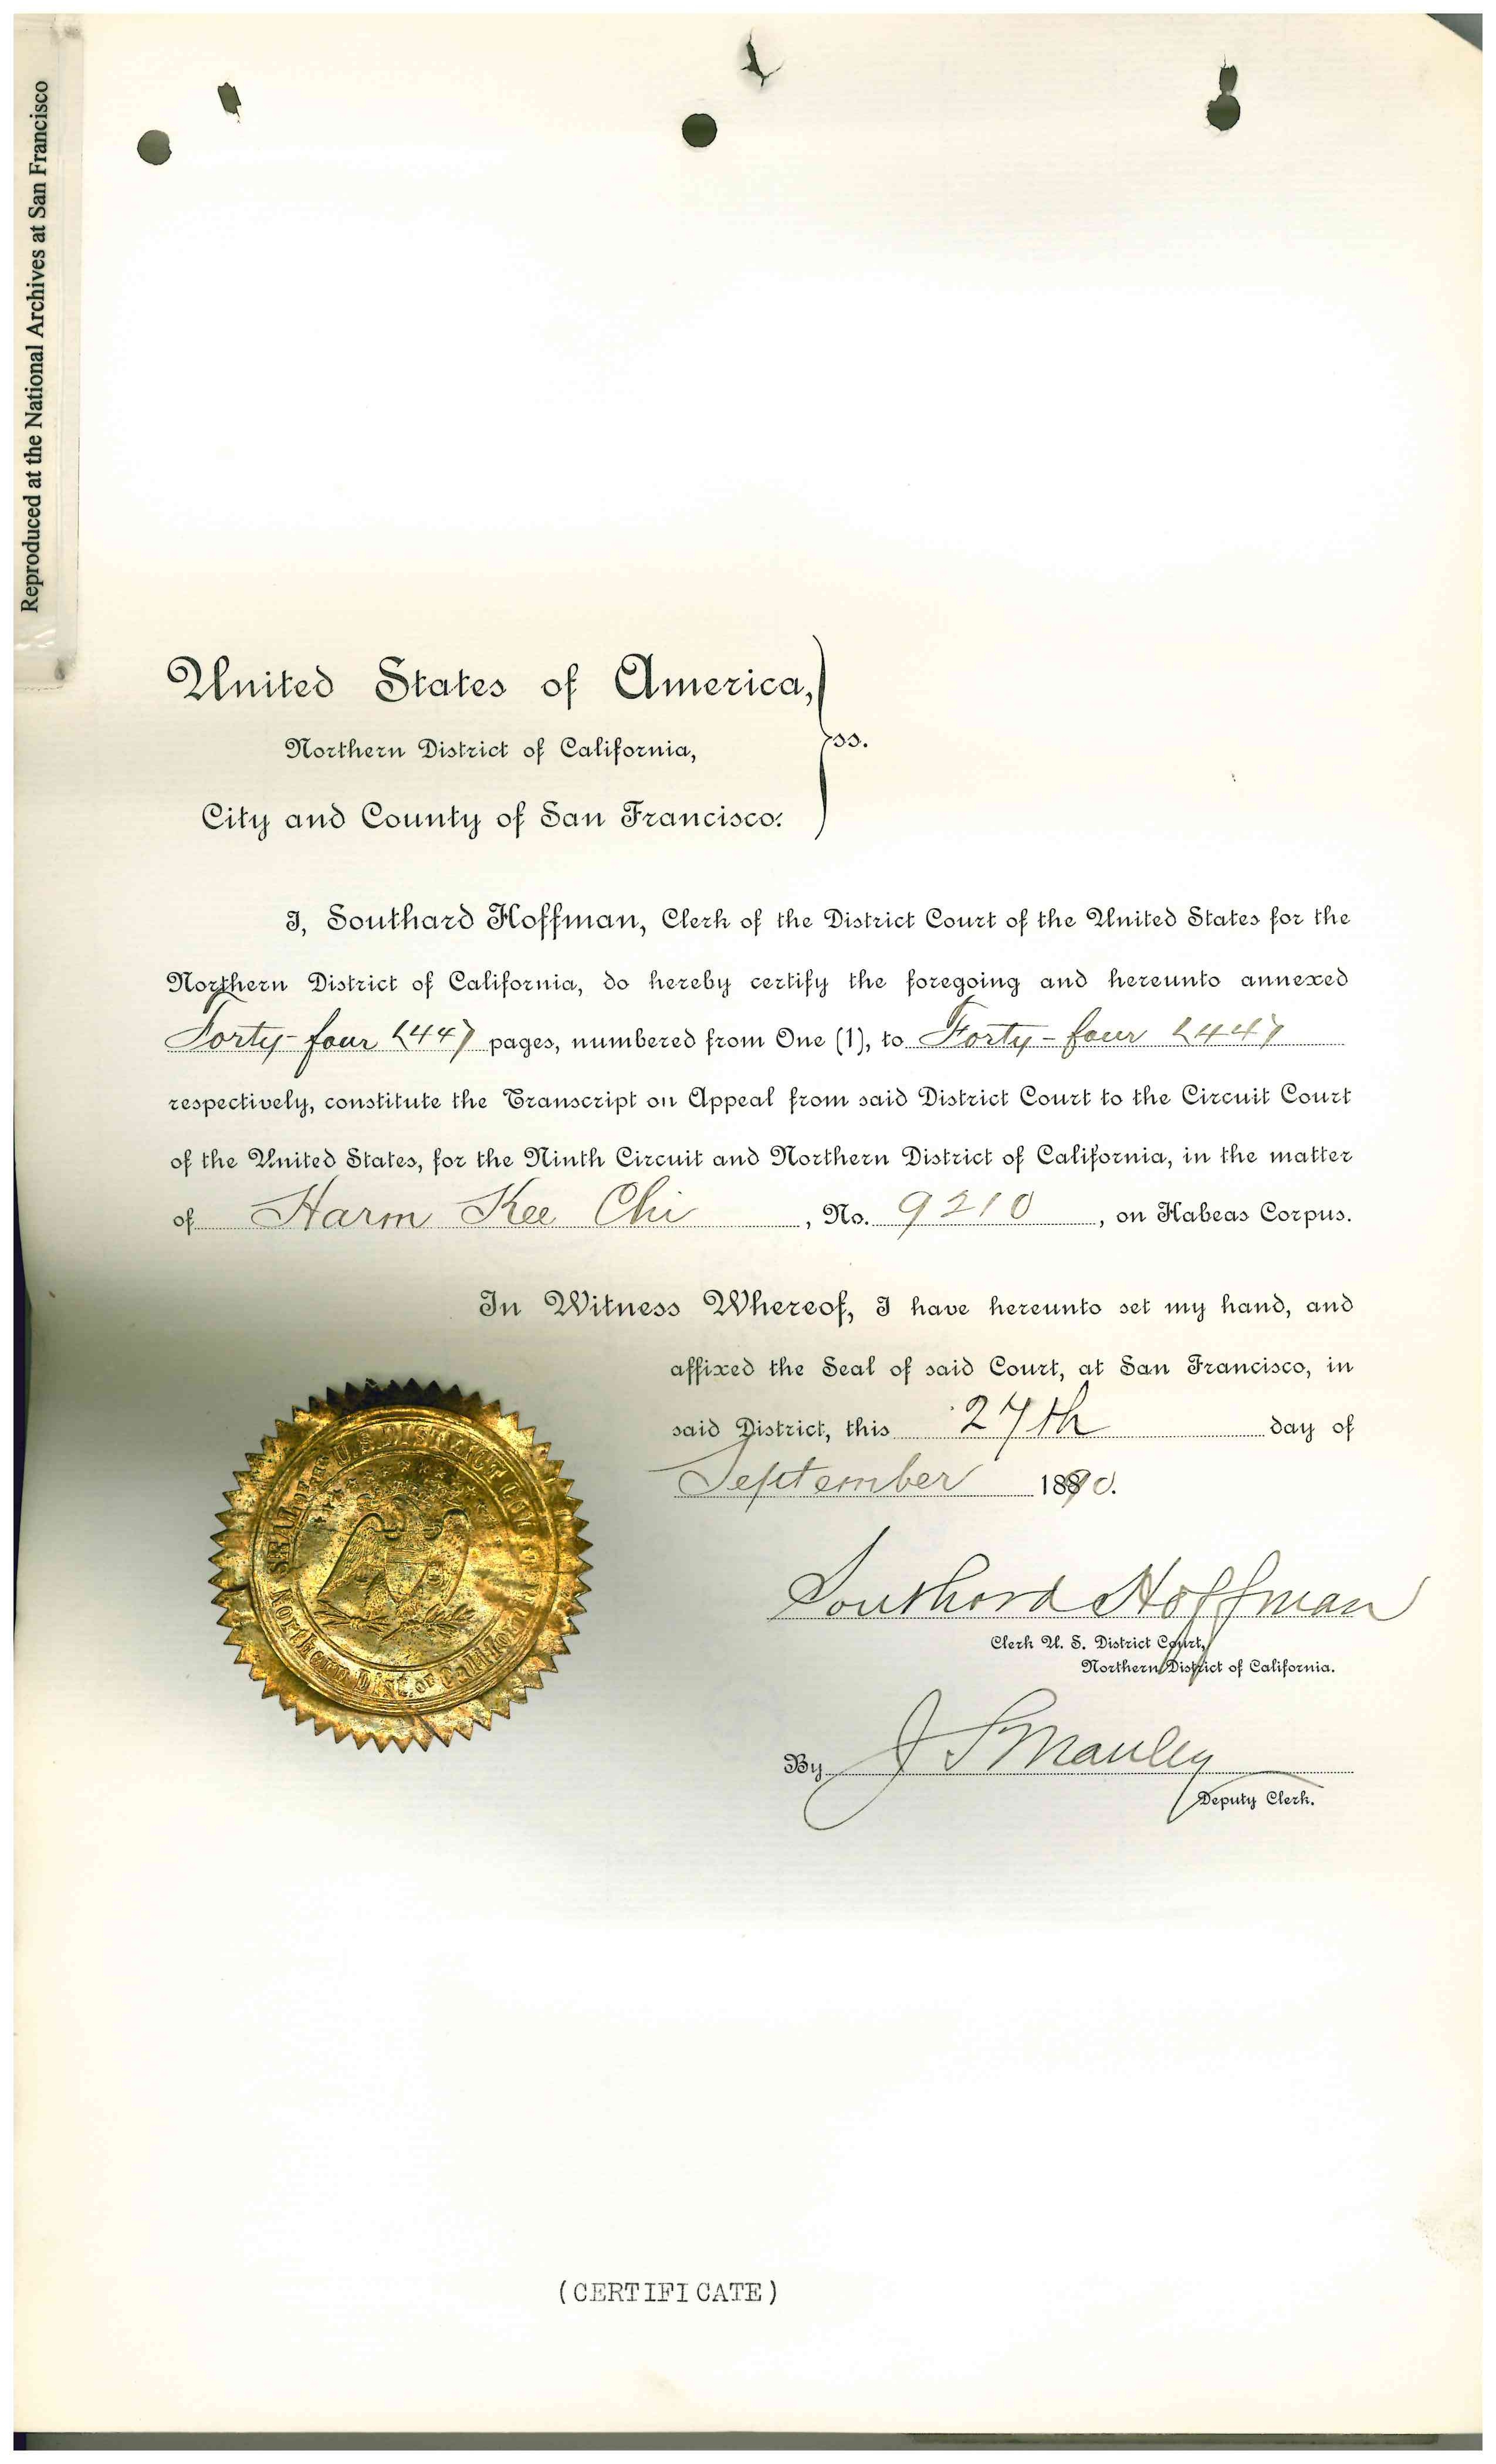 Reproduced at the National Archives at San Francisco
United States of America,
Northern District of California,
ss.
City and County of San Francisco.
I, Southard Hoffman, Clerk of the District Court of the United States for the
Northern District of California, do hereby certify the foregoing and hereunto annexed
Forty-four (44) pages, numbered from One (1), to Forty-four (44)
respectively, constitute the Transcript on Appeal from said District Court to the Circuit Court
of the United States, for the Ninth Circuit and Northern District of California, in the matter
of Harm Kee Chi, No. 9210, on Habeas Corpus.
In Witness Whereof, I have hereunto set my hand, and
affixed the Seal of said Court, at San Francisco, in
said District, this 27th day of
September 1890.
SEAL OF THE U.S. DISTRICT COURT
Northern Dist. of California
Southard Hoffman
Clerk U. S. District Court,
Northern District of California.
By J S Manley
Deputy Clerk.
(CERTIFICATE)